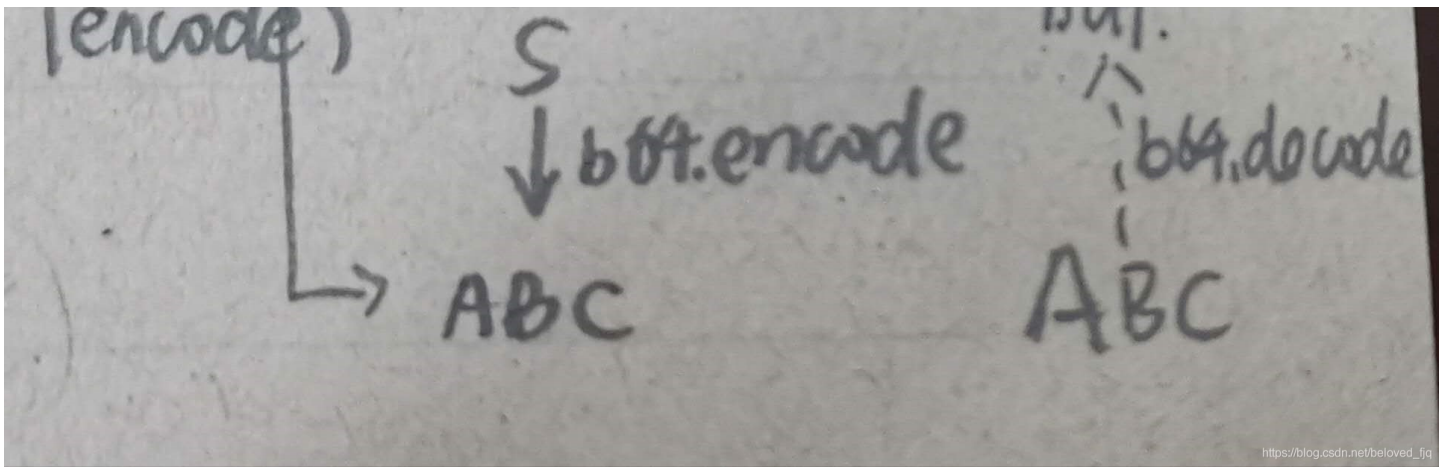 (encode)
S
b64.encode
b64.decode
ABC
ABC
https://blog.csdn.net/beloved_fjq